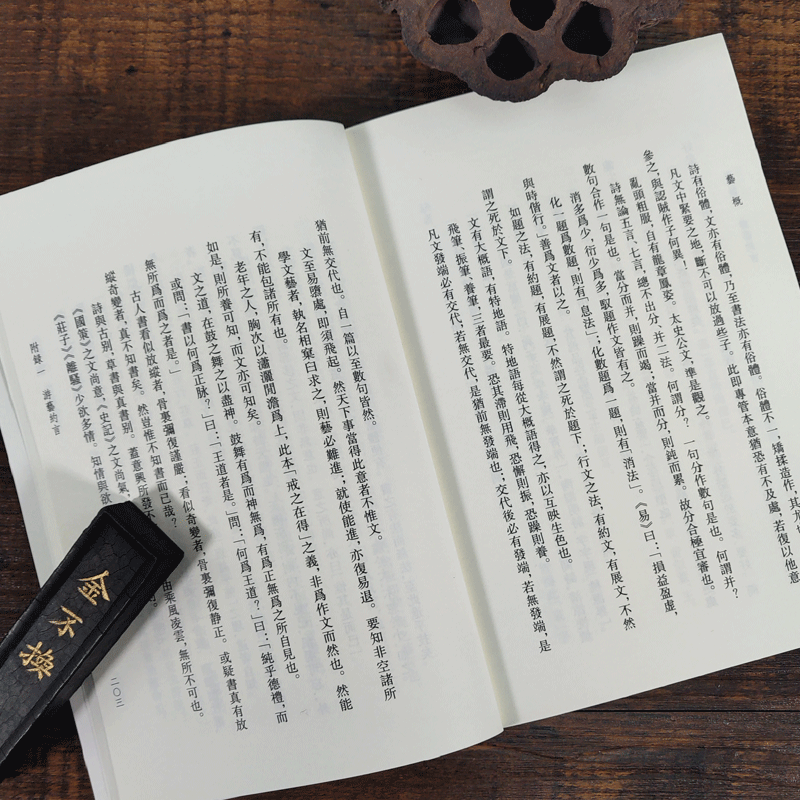 藝概
詩有俗體，文亦有俗體，乃至書法亦有俗體。俗體不一，矯揉造作，其尤
凡文中緊要之地，斷不可放過些子。此即專管本意猶恐有不及處，若復以他意
參之，與認賊作子何異！太史公文，準是觀之。
亂頭粗服，自有龍章鳳姿。
詩無論五言、七言，總不出分、并二法。何謂分？一句分作數句是也。何謂并？
數句合作一句是也。當分而并，則躁而竭；當并而分，則鈍而累。故分合極宜審也。
消多爲少，衍少爲多，馭題作文皆有之。
化一題爲數題，則有「息法」；化數題爲一題，則有「消法」。《易》曰：「損益盈虛，
與時偕行。」善爲文者以之。
如題之法，有約題，有展題，不然謂之死於題下；行文之法，有約文，有展文，不然
謂之死於文下。
文有大概語，有特地語。特地語每從大概語得之，亦以互映生色也。
飛筆、振筆、養筆，三者最要。恐其滯則用飛，恐懈則振，恐躁則養。
凡文發端必有交代，若無交代，是猶前無發端也；交代後必有發端，若無發端，是
猶前無交代也。自一篇以至數句皆然。
文至易墮處，即須飛起。然天下事當得此意者不惟文。
學文藝者，執名相棄曰求之，則藝必難進；就使能進，亦復易退。要知非空諸所
有，不能包諸所有也。
老年之人，胸次以瀟灑閒澹爲上，此本「戒之在得」之義，非爲作文而然也。然能
如是，則所養可知，而文亦可知矣。
文之道，在鼓之舞之以盡神。鼓舞有爲而神無爲，有爲正無爲之所自見也。
或問：「書以何爲正脉？」曰：「王道者是。」問：「何爲王道？」曰：「純乎德禮，而
無所爲而爲之者是。」
古人書看似放縱者，骨裏彌復謹嚴；看似奇變者，骨裏彌復静正。或疑書真有放
縱奇變者，真不知書矣。然豈惟不知書而已哉？
詩與古别，草書與真書别。蓋意興所發不
由乘風凌雲，無所不可也。
《國策》之文尚意，《史記》之文尚氣
《莊子》《離騷》少欲多情。知情與欲
附錄一 游藝約言
二〇三
金不換